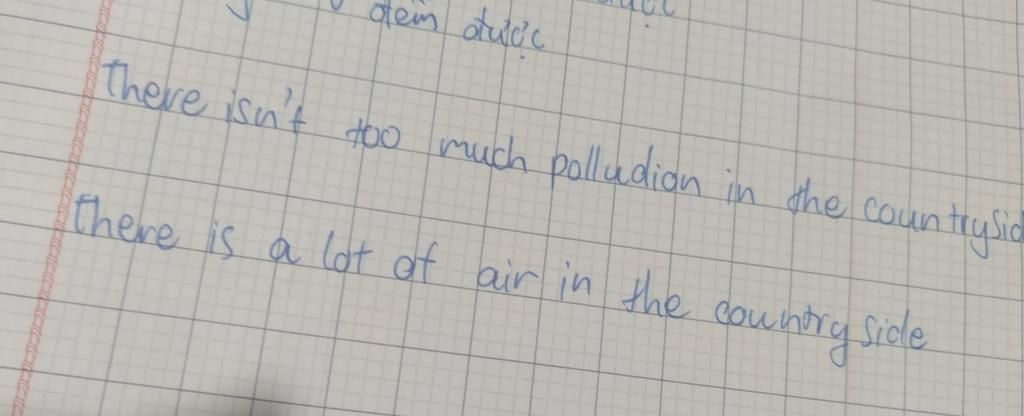 đếm được
there isn't too much polludion in the countrysid
there is a lot of air in the country side